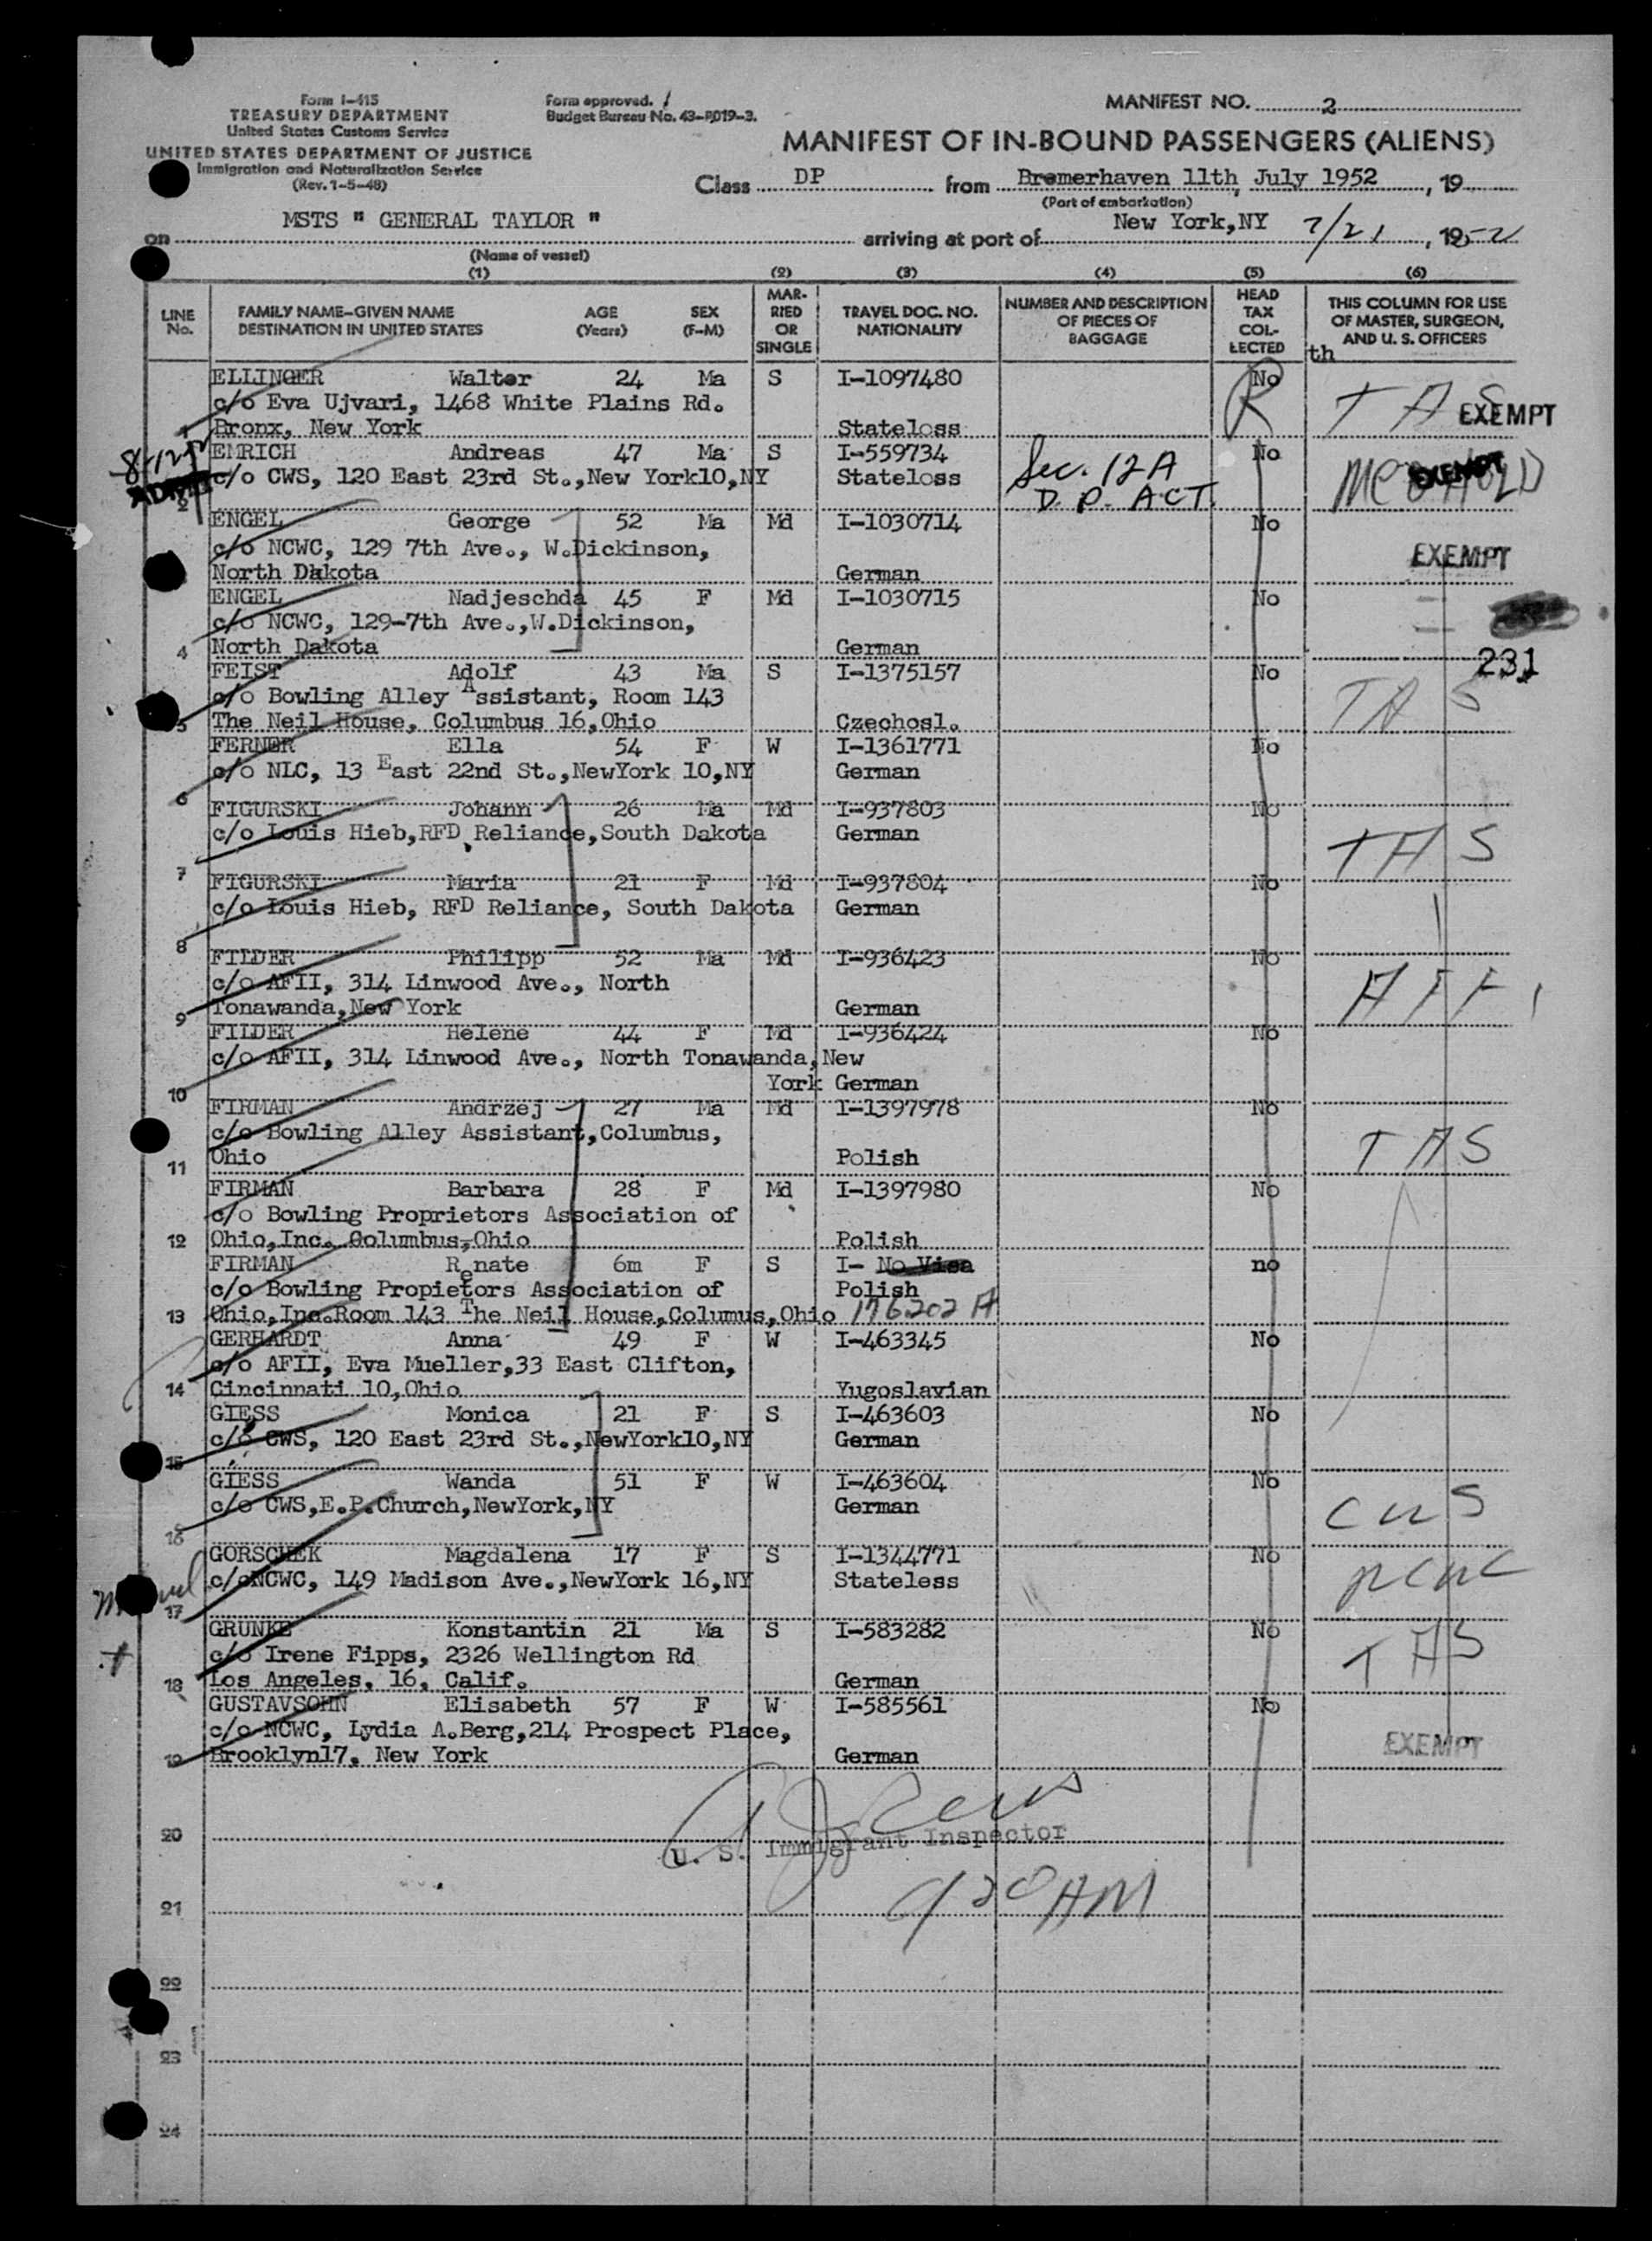 Form I-415
TREASURY DEPARTMENT
United States Customs Service
UNITED STATES DEPARTMENT OF JUSTICE
Immigration and Naturalization Service
(Rev. 1-5-48)
Form approved.
Budget Bureau No. 43-R019-3.
MANIFEST NO. 2
MANIFEST OF IN-BOUND PASSENGERS (ALIENS)
Class DP from Bremerhaven 11th, July 1952, 19
(Port of embarkation)
on MSTS " GENERAL TAYLOR " arriving at port of New York,NY 7/21, 1952
(Name of vessel)
(1) (2) (3) (4) (5) (6)
LINE No. FAMILY NAME-GIVEN NAME DESTINATION IN UNITED STATES AGE (Years) SEX (F-M) MARRIED OR SINGLE TRAVEL DOC. NO. NATIONALITY NUMBER AND DESCRIPTION OF PIECES OF BAGGAGE HEAD TAX COLLECTED THIS COLUMN FOR USE OF MASTER, SURGEON, AND U. S. OFFICERS
th
ELLINGER Walter 24 Ma S I-1097480 No
c/o Eva Ujvari, 1468 White Plains Rd. R TAS EXEMPT
Bronx, New York Stateless
EMRICH Andreas 47 Ma S I-559734 Sec. 12A No
c/o CWS, 120 East 23rd St.,New York10,NY Stateless D. P. ACT. EXEMPT HOLD
2
ENGEL George 52 Ma Md I-1030714 No
c/o NCWC, 129 7th Ave., W.Dickinson, EXEMPT
North Dakota German
ENGEL Nadjeschda 45 F Md I-1030715 No
c/o NCWC, 129-7th Ave.,W.Dickinson,
4 North Dakota German
231
FEIST Adolf 43 Ma S I-1375157 No
c/o Bowling Alley Assistant, Room 143 TAS
5 The Neil House, Columbus 16,Ohio Czechosl.
FERNER Ella 54 F W I-1361771 No
c/o NLC, 13 East 22nd St.,NewYork 10,NY German
6
FIGURSKI Johann 26 Ma Md I-937803 No
c/o Louis Hieb,RFD Reliance,South Dakota German TAS
7
FIGURSKI Maria 21 F Md I-937804 No
c/o Louis Hieb, RFD Reliance, South Dakota German
8
FILDER Philipp 52 Ma Md I-936423 No
c/o AFII, 314 Linwood Ave., North
9 Tonawanda,New York German
FILDER Helene 44 F Md I-936424 No
c/o AFII, 314 Linwood Ave., North Tonawanda,New
10 York German
FIRMAN Andrzej 27 Ma Md I-1397978 No
c/o Bowling Alley Assistant,Columbus, TAS
11 Ohio Polish
FIRMAN Barbara 28 F Md I-1397980 No
c/o Bowling Proprietors Association of
12 Ohio,Inc. Columbus,Ohio Polish
FIRMAN Renate 6m F S I- No Visa no
c/o Bowling Propietors Association of Polish
13 Ohio,Inc.Room 143 The Neil House,Columus,Ohio 176202 A
GERHARDT Anna 49 F W I-463345 No
c/o AFII, Eva Mueller,33 East Clifton,
14 Cincinnati 10,Ohio Yugoslavian
GIESS Monica 21 F S I-463603 No
c/o CWS, 120 East 23rd St.,NewYork10,NY German
15
GIESS Wanda 51 F W I-463604 No
c/o CWS,E.P.Church,NewYork,NY German CWS
16
GORSCHEK Magdalena 17 F S I-1344771 No
c/oNCWC, 149 Madison Ave.,NewYork 16,NY Stateless
17
GRUNKE Konstantin 21 Ma S I-583282 No
c/o Irene Fipps, 2326 Wellington Rd TAS
18 Los Angeles, 16, Calif. German
GUSTAVSOHN Elisabeth 57 F W I-585561 No
c/o NCWC, Lydia A.Berg,214 Prospect Place, EXEMPT
19 Brooklyn17, New York German
20 U. S. Immigrant Inspector
930 AM
21
22
23
24